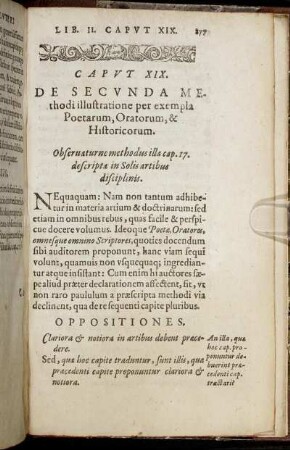 LIB. II. CAPVT XIX. 277
CAPVT XIX.
DE SECVNDA ME-
thodi illustratione per exempla
Poetarum, Oratorum, &
Historicorum.
Obseruaturne methodus illa cap. 17.
descripta in Solis artibus
disciplinis.
NEquaquam: Nam non tantum adhibe-
tur in materia artium & doctrinarum: sed
etiam in omnibus rebus, quas facile & perspi-
cue docere volumus. Ideoque Poetæ, Oratores,
omnesque omnino Scriptores, quoties docendum
sibi auditorem proponunt, hanc viam sequi
volunt, quamuis non vsquequaq; ingredian-
tur atque insistant: Cum enim hi auctores sæ-
pe aliud præter declarationem affectent, fit, vt
non raro paululum a præscripta methodi via
declinent, qua de re sequenti capite pluribus.
OPPOSITIONES.
Clariora & notiora in artibus debent præce-
dere.
Sed, quæ hoc capite traduntur, sunt illis, quæ
præcedenti capite proponuntur clariora &
notiora.
An illo, quæ
hoc cap. pro-
ponuntur de-
buerint præ-
cedenti cap.
tractari?